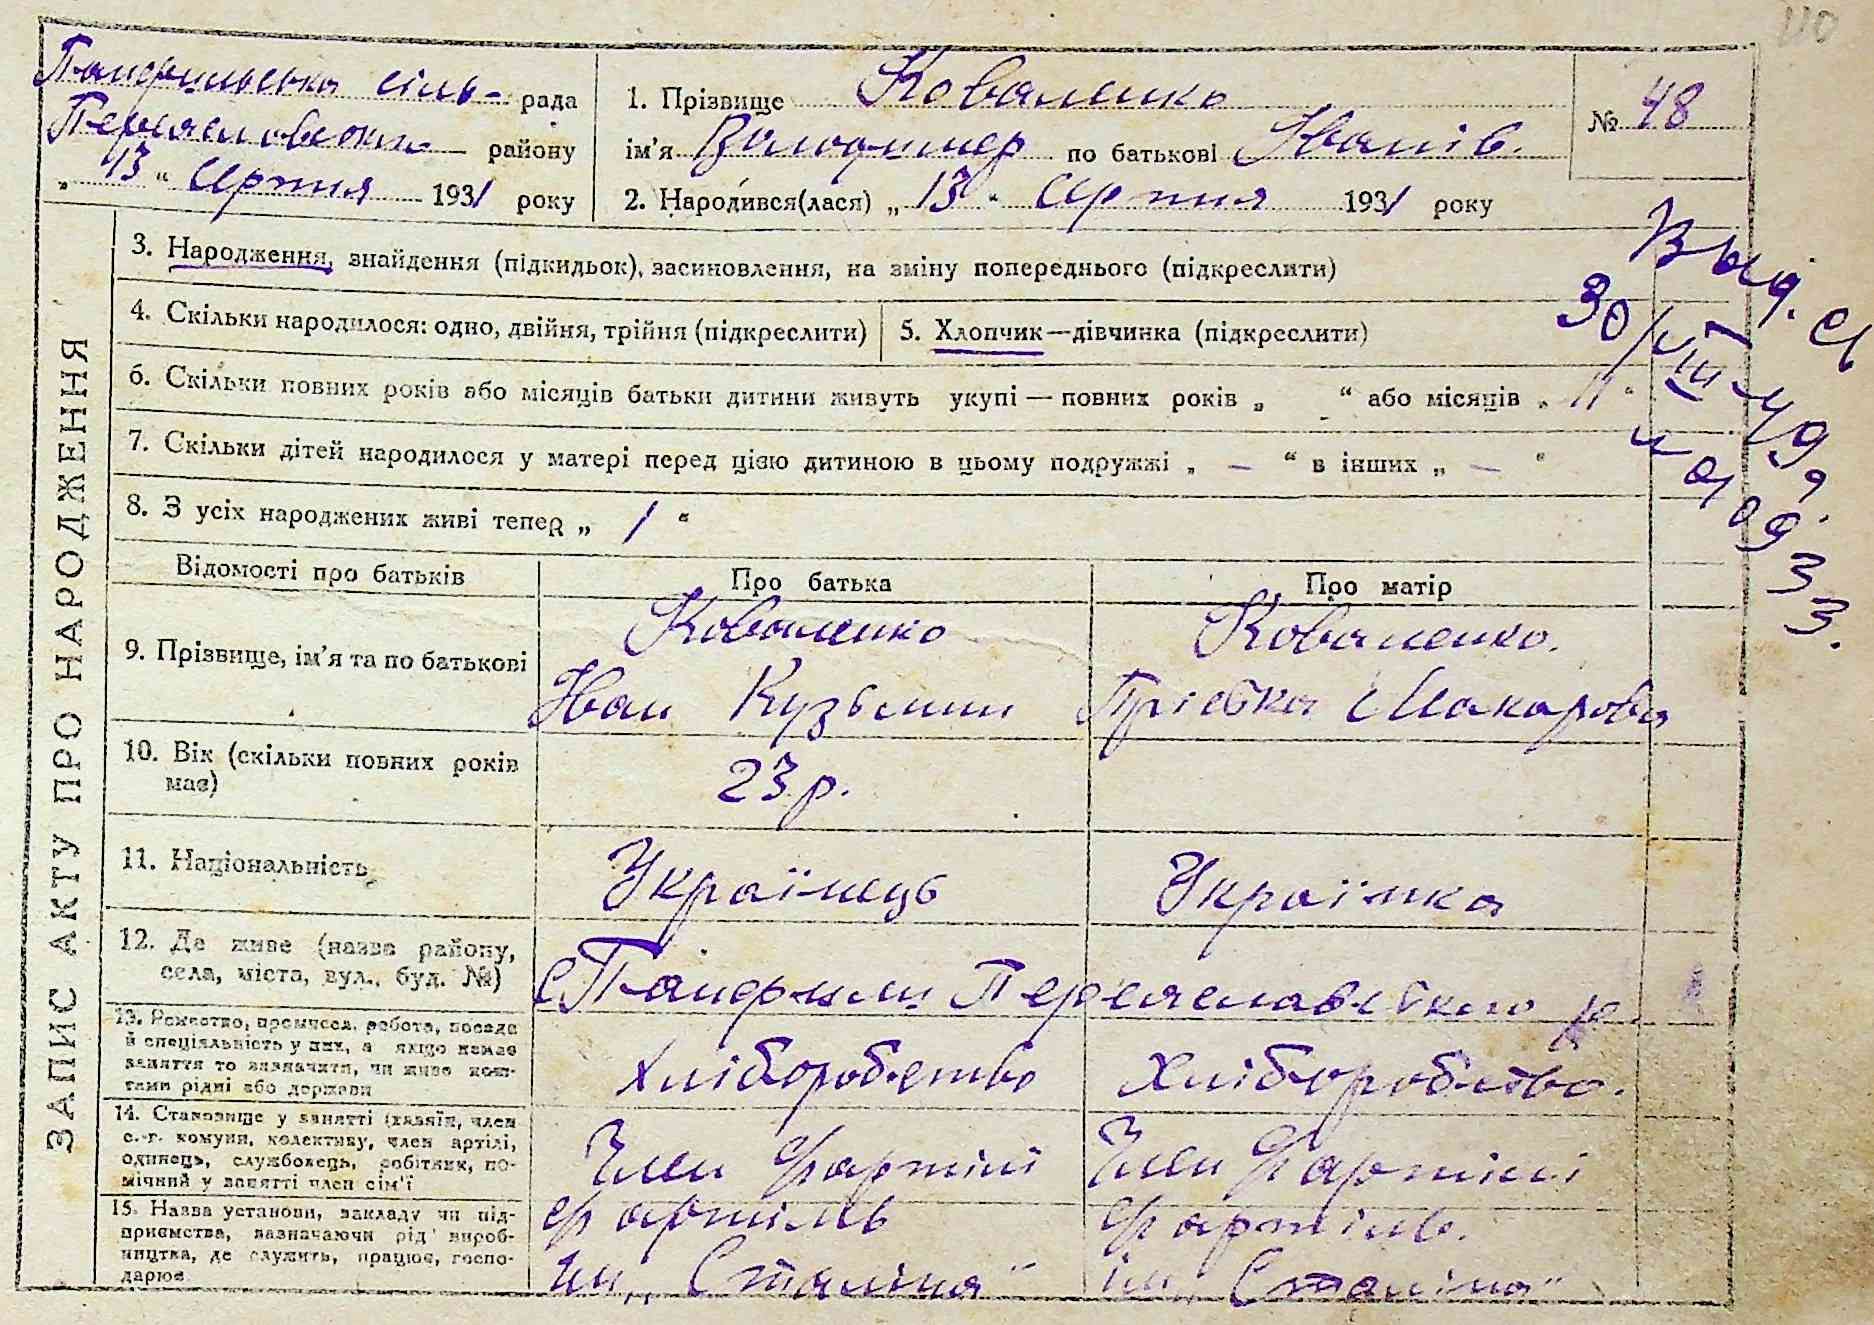 110
Панфильська сіль- рада
Переяславськ району
„ 13 “ Серпня 1931 року
1. Прізвище Коваленко
ім’я Володимер по батькові Іванів.
№ 48
2. Народився(лася) „ 13 “ Серпня 1931 року
ЗАПИС АКТУ ПРО НАРОДЖЕННЯ
3. Народження, знайдення (підкидьок), засиновлення, на зміну попереднього (підкреслити)
4. Скільки народилося: одно, двійня, трійня (підкреслити)
5. Хлопчик—дівчинка (підкреслити)
6. Скільки повних років або місяців батьки дитини живуть укупі — повних років „ “ або місяців „ 11 “
7. Скільки дітей народилося у матері перед цією дитиною в цьому подружжі „ — “ в інших „ — “
8. З усіх народжених живі тепер „ 1 “
Выд.
30/VIII-49
Відомості про батьків
Про батька
Про матір
9. Прізвище, ім’я та по батькові
Коваленко
Іван Кузьмин
Коваленко.
Макарова
10. Вік (скільки повних років
має)
23 р.
11. Національність
Українець
Українка
12. Де живе (назва району,
села, міста, вул., буд. №)
с Панфили Переяславського р.
13. Ремество, промисел, робота, посада
й спеціяльність у них, а якщо немає
заняття то визначити, чи живе кош-
тами рідні або держави
Хліборобство
Хліборобство.
14. Становище у занятті (хазяїн, член
с.-г. комуни, колективу, член артілі,
одинець, службовець, робітник, по-
мічний у занятті член сім’ї
Член Гартілі
Член Гартілі
15. Назва установи, закладу чи під-
приємства, зазначаючи рід вироб-
ництва, де служить, працює, госпо-
дарює
Гартіль
ім „Сталіна“
Гартіль.
ім „Сталіна“